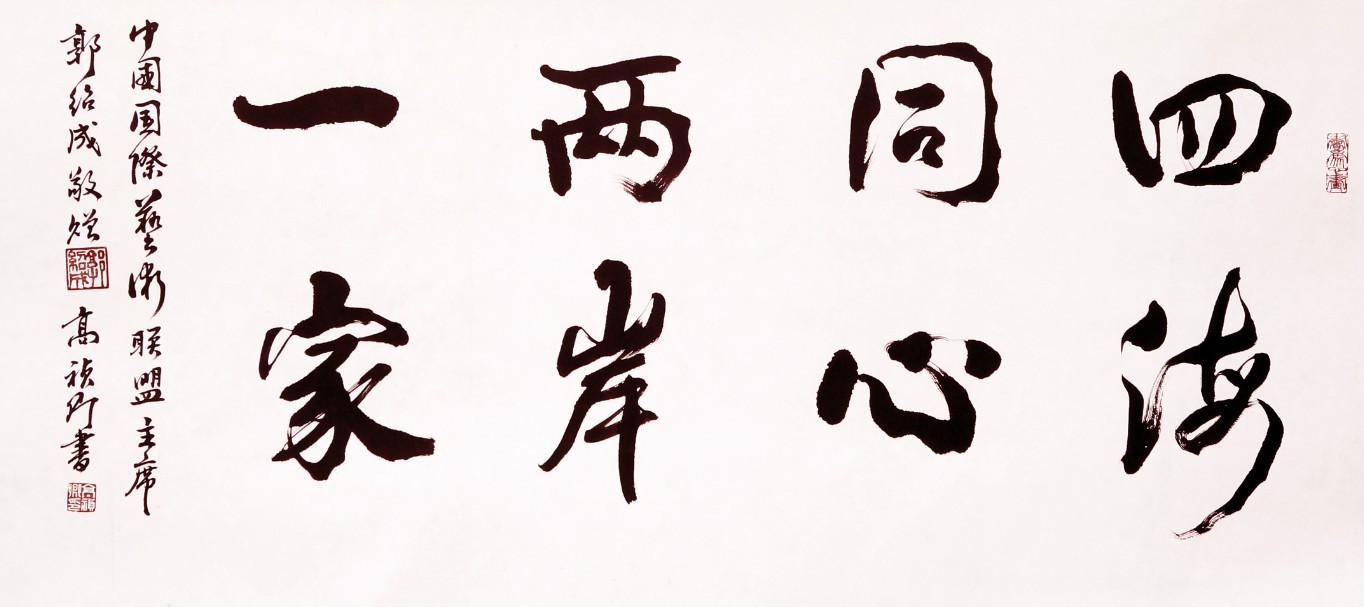 四海
同心
两岸
一家
中國国際藝術联盟主席
郭绍成敬赠
郭紹成
高祯
书